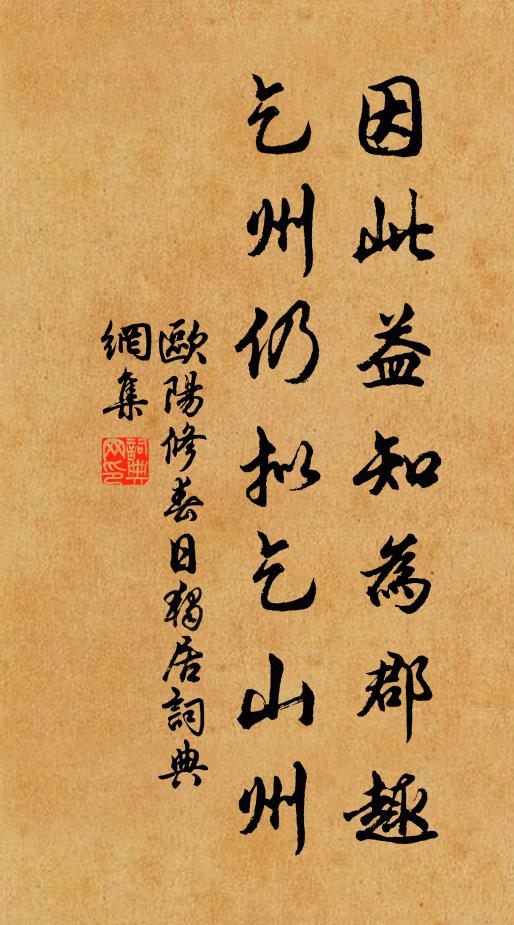 因此益知為郡趣
乞州仍拟乞山州
歐陽修春日獨居詞典
網集
詞典
网印